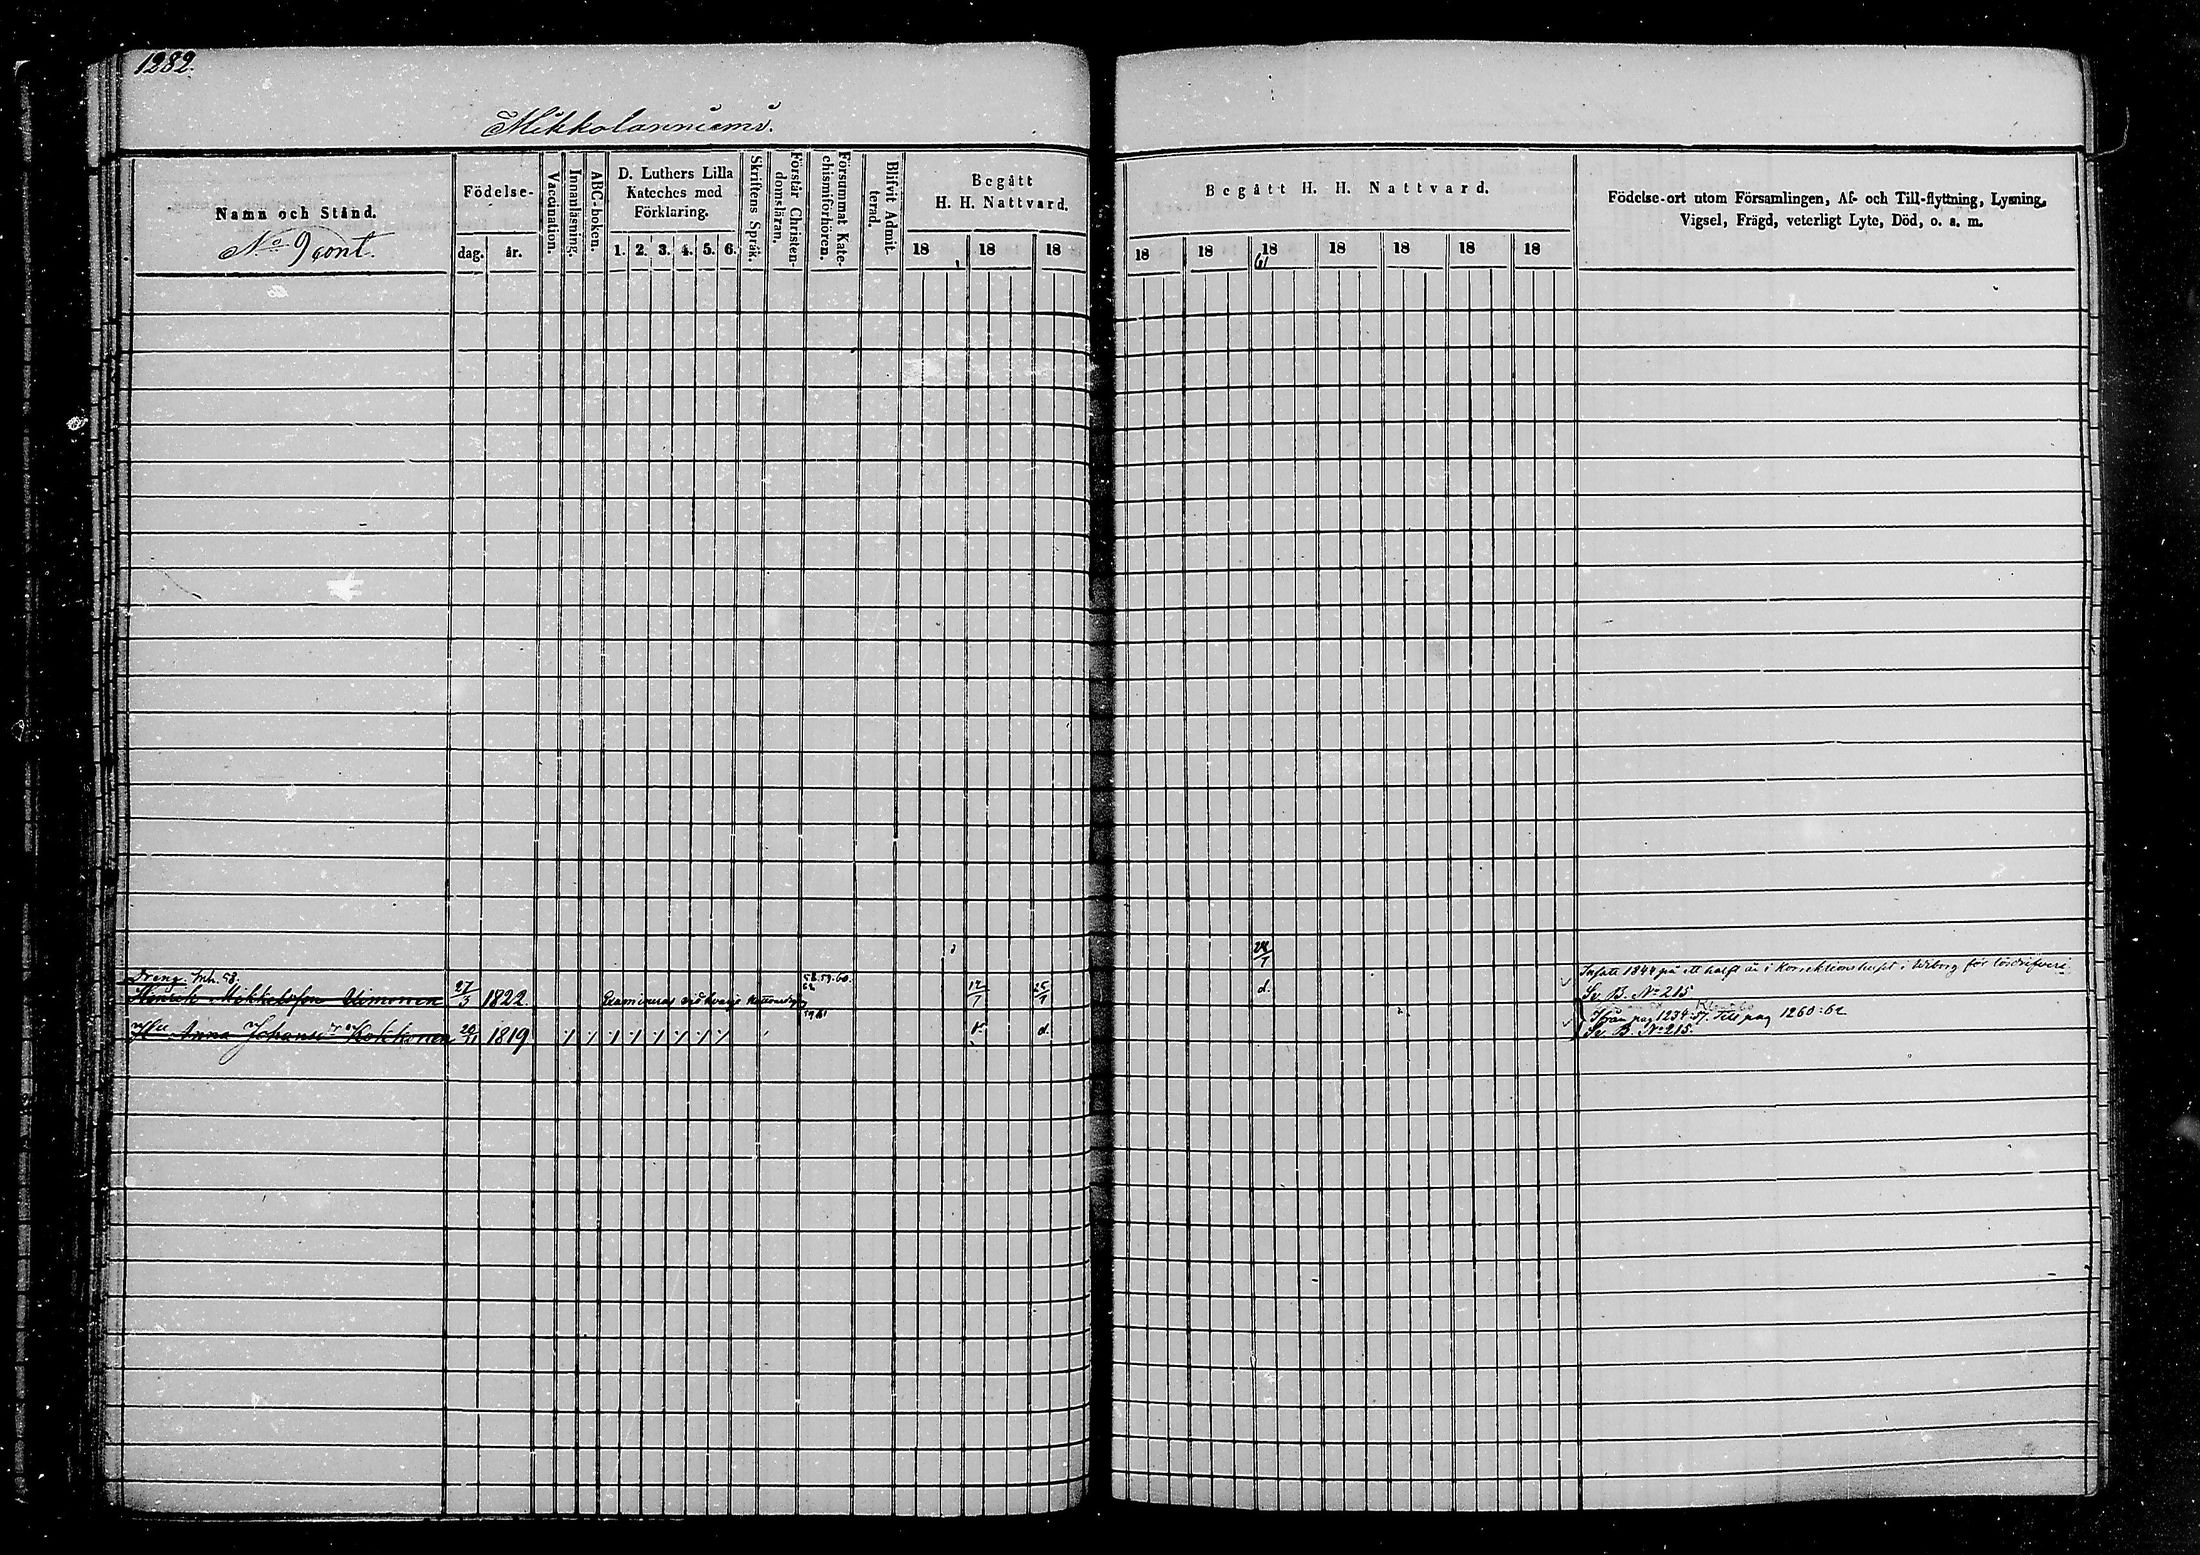 1282.
Mikkolanniemi.
Namn och Stånd.
No 9 cont.
Födelse-
dag. år.
Vaccination.
Innanläsning.
ABC-boken.
D. Luthers Lilla
Kateches med
Förklaring.
1. 2. 3. 4. 5. 6.
Skriftens Språk.
Förstår Christen-
domsläran.
Försummat Kate-
chismiförhören.
Blifvit Admit-
terad.
Begått
H. H. Nattvard.
18 18 18
Begått H. H. Nattvard.
18 18 18 61 18 18 18 18
Födelse-ort utom Församlingen, Af- och Till-flyttning, Lysning,
Vigsel, Frägd, veterligt Lyte, Död, o. s. m.
Dreng Inh. 58.
Hinrich Mikkelsson Simonen 27/3 1822. Examineras vid hvarje 58.59.60. 62 12/1 25/1
d.
Insatt 1844 på ett halft år i Korrektionshuset i Wiborg för lösdrifveri
Se B. No 215
Hu Anna Johansdr Kokkonen 20/11 1819 d.
Ifrån pag 1234:57. Till pag 1260:62
Se B. No 215.